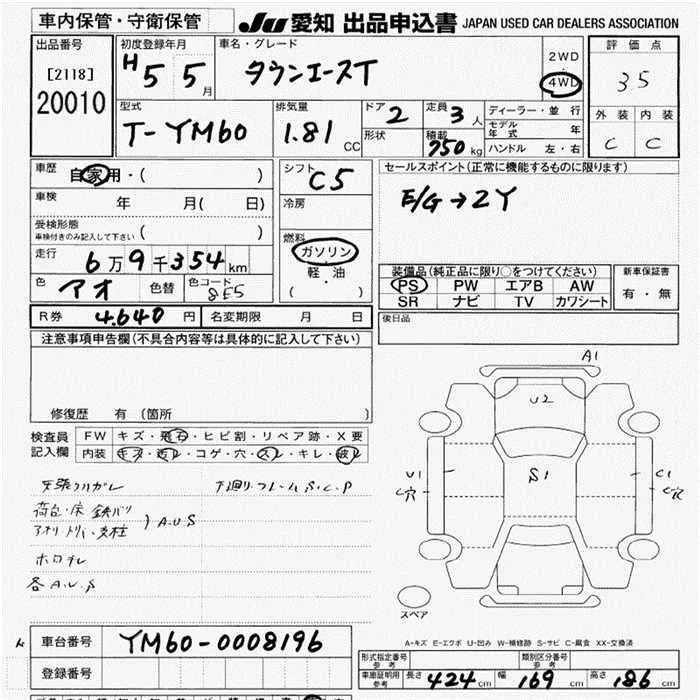 車内保管・守衛保管 JU 愛知 出品申込書 JAPAN USED CAR DEALERS ASSOCIATION
出品番号 初度登録年月 車名・グレード 2WD 評価点
[2118] H5 5月 タウンエースT 4WD 3.5
20010
型式 排気量 ドア 定員 ディーラー・並行 外装 内装
T-YM60 1.81 CC 2 3人 モデル年式 年 C C
形状 積載 750kg ハンドル 左・右
車歴 自家用・( ) シフト C5 セールスポイント(正常に機能するものに限ります)
車検 年 月( 日) 冷房 E/G→2Y
受検形態
車検付きのみ記入して下さい ( ) 燃料
走行 6万9千354km ガソリン 装備品(純正品に限り○をつけてください) 新車保証書
軽・油 PS PW エアB AW 有・無
色 アオ 色替 色コード 8E5 ( ) SR ナビ TV カワシート
R券 4,640円 名変期限 月 日 後日品
注意事項申告欄(不具合内容等は具体的に記入して下さい)
修復歴 有(箇所 )
検査員 FW キズ・飛石・ヒビ割・リペア跡・X要
記入欄 内装 キズ・汚レ・コゲ・穴・スレ・キレ・破レ
A1
U2
S1
U1 C穴
C1 C穴
天張リハガレ 下廻リ・フレームS.C.P
荷台・床 鉄バリ
アオリ・トリイ・支柱 )A.U.S
ホロナシ
各A.U.S
スペア
A-キズ E-エクボ U-凹み W-補修跡 S-サビ C-腐食 XX-交換済
車台番号 YM60-0008196
形式指定番号 参考 類別区分番号 参考
登録番号 車庫証明用 参考 長さ 424cm 幅 169cm 高さ 186cm